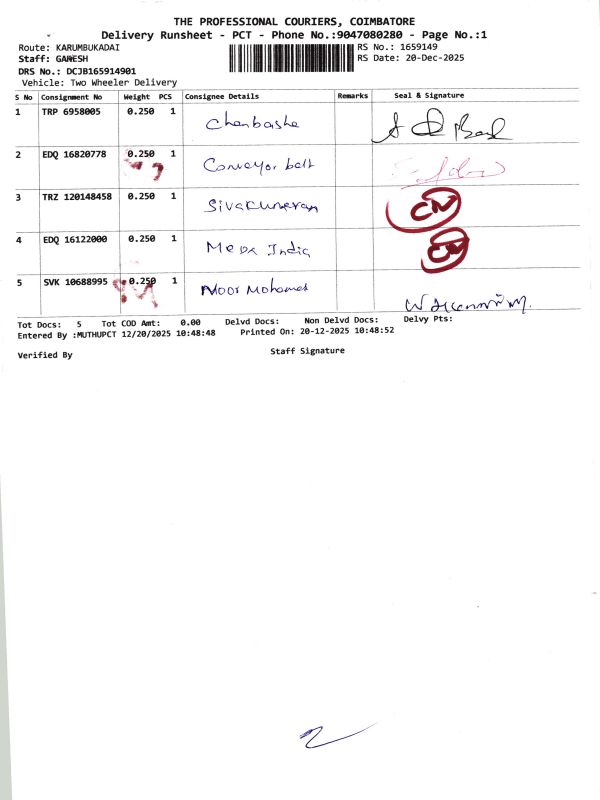 THE PROFESSIONAL COURIERS, COIMBATORE
Delivery Runsheet - PCT - Phone No.:9047080280 - Page No.:1
Route: KARUMBUKADAI RS No.: 1659149
Staff: GANESH RS Date: 20-Dec-2025
DRS No.: DCJB165914901
Vehicle: Two Wheeler Delivery
S No Consignment No Weight PCS Consignee Details Remarks Seal & Signature
1 TRP 6958005 0.250 1 Chanbasha
2 EDQ 16820778 0.250 1 Conveyor belt
3 TRZ 120148458 0.250 1 Sivakumaran CN
4 EDQ 16122000 0.250 1 Meda India CN
5 SVK 10688995 0.250 1 Noor Mohamed
Tot Docs: 5 Tot COD Amt: 0.00 Delvd Docs: Non Delvd Docs: Delvy Pts:
Entered By :MUTHUPCT 12/20/2025 10:48:48 Printed On: 20-12-2025 10:48:52
Verified By Staff Signature